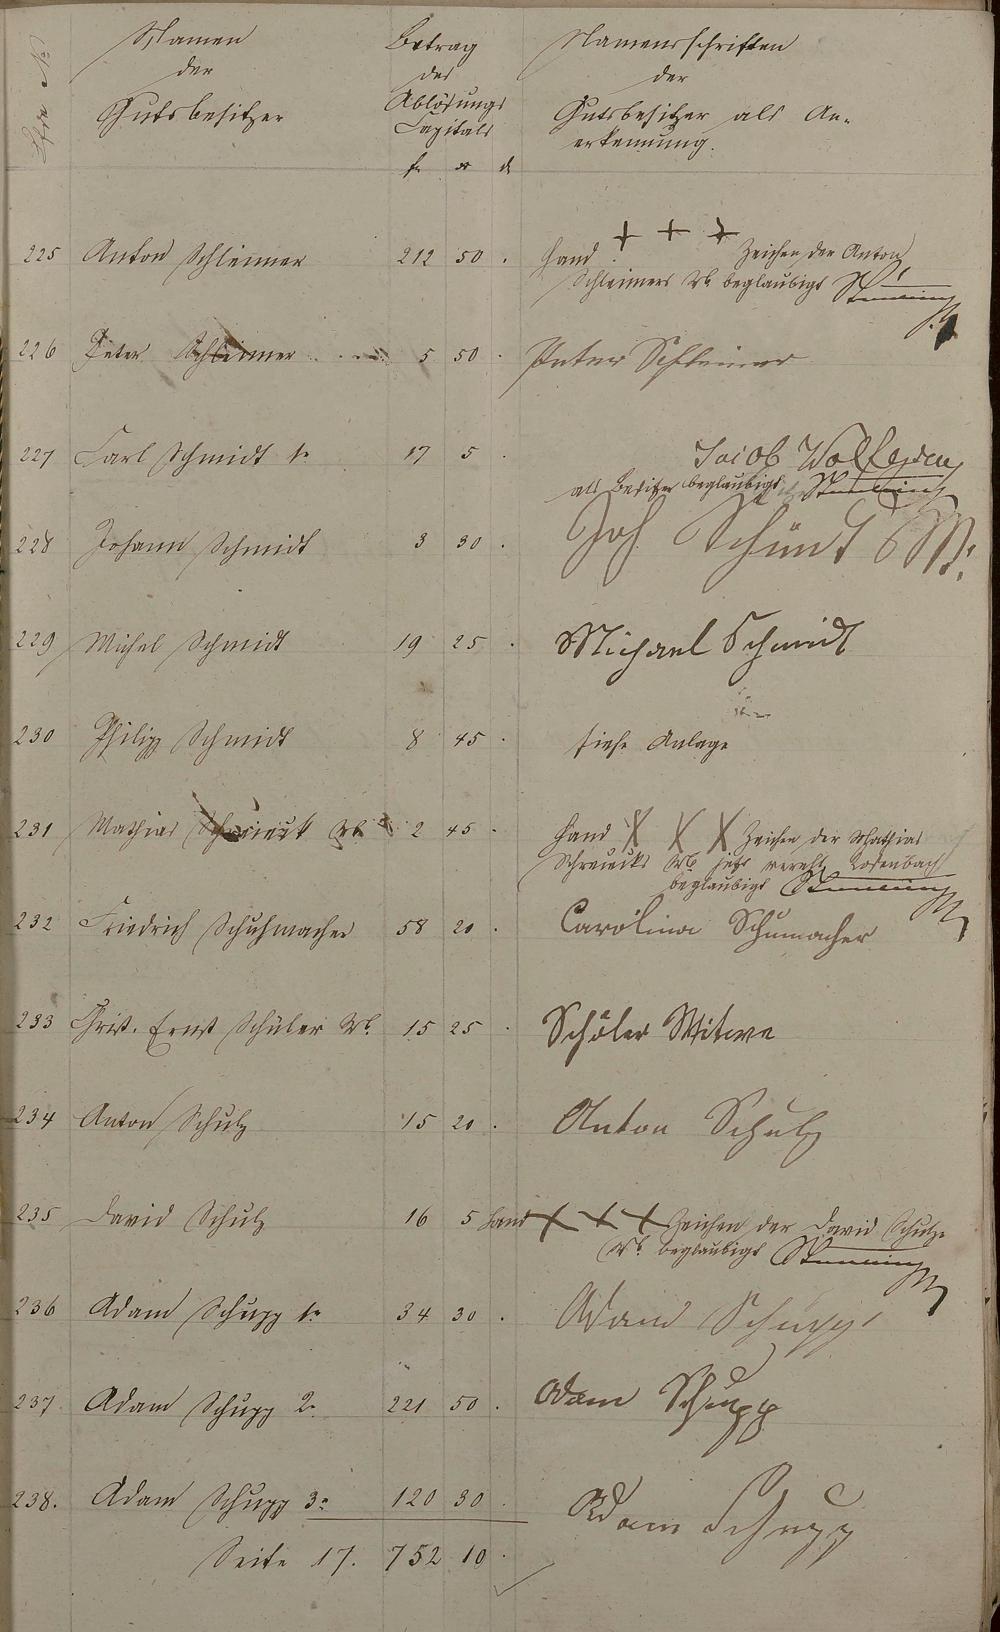 Lfde No
Namen
der
Gutsbesitzer
Betrag
des
Ablösungs
Capitals
fl x d
Namensschriften
der
Gutsbesitzer als An-
erkennung.
225 Anton Schleimer 212 50 . Hand + + + Zeichen der Anton
Schleimers Wb beglaubigt
226 Peter Schleimer 5 50 . Peter Schleimer
227 Carl Schmidt 1r 17 5 . Jacob
als Besitzer beglaubigt
228 Johann Schmidt 3 30 . Joh Schmidt
229 Michel Schmidt 19 25 . Michael Schmidt
230 Philipp Schmidt 8 45 . siehe Anlage
231 Mathias Schreieck Wb 2 45 . Hand X X X Zeichen der Mathias
Schreiecks Wb jetzt verehl. Losenbach
beglaubigt
232 Friedrich Schuhmacher 58 20 . Carolina Schumacher
233 Christ. Ernst Schüler Wb. 15 25 . Schüler Witwe
234 Anton Schulz 15 20 . Anton Schulz
235 David Schulz 16 5 Hand + + + Zeichen der David Schulz
Wb. beglaubigt
236 Adam Schupp 1r 34 30 . Adam Schupp
237 Adam Schupp 2r 221 50 . Adam Schupp
238. Adam Schupp 3r 120 30 . Adam Schupp
Seite 17. 752 10 .